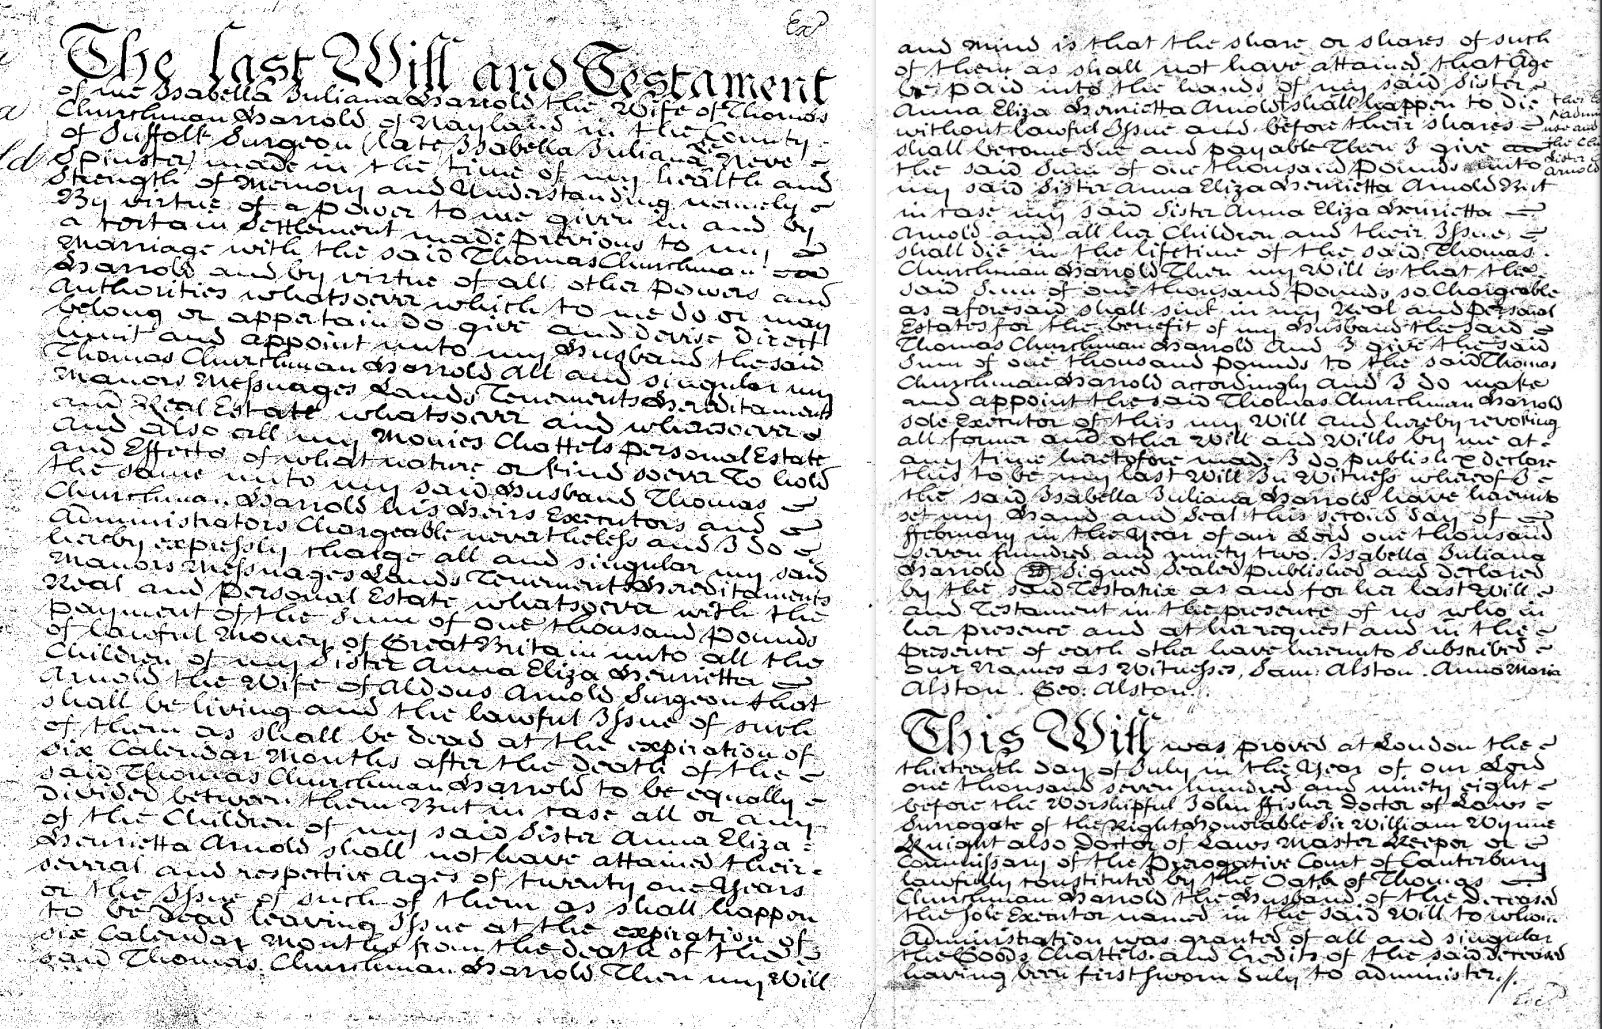 Exd
The last Will and Testament
of me Isabella Juliana Harrold the Wife of Thomas
Churchman Harrold of Nayland in the County
of Suffolk Surgeon (late Isabella Juliana Neve
Spinster) made in the time of my health and
Strength of Memory and Understanding namely
By virtue of a power to me given in and by
a certain Settlement made previous to my
Marriage with the said Thomas Churchman
Harrold and by virtue of all other powers and
Authorities whatsoever which to me do or may
belong or appertain do give and devise direct
limit and appoint unto my Husband the said
Thomas Churchman Harrold all and singular my
Manors Messuages Lands Tenements Hereditaments
and Real Estate whatsoever and wheresoever
And also all my Monies Chattels personal Estate
and Effects of what nature or kind soever To hold
the same unto my said Husband Thomas
Churchman Harrold his Heirs Executors and
Administrators Chargeable nevertheless and I do
hereby expressly charge all and singular my said
Manors Messuages Lands Tenements Hereditaments
Real and personal Estate whatsoever with the
payment of the Sum of one thousand pounds
of lawful Money of Great Britain unto all the
Children of my Sister Anna Eliza Henrietta
Arnold the Wife of Aldous Arnold Surgeon that
shall be living and the lawful Issue of such
of them as shall be dead at the expiration of
six Calendar Months after the death of the
said Thomas Churchman Harrold to be equally
divided between them But in case all or any
of the Children of my said Sister Anna Eliza
Henrietta Arnold shall not have attained their
several and respective ages of twenty one Years
or the Issue of such of them as shall happen
to be dead leaving Issue at the expiration of
six Calendar Months from the death of the
said Thomas Churchman Harrold Then my Will
and Mind is that the share or shares of such
of them as shall not have attained that Age
be paid into the hands of my said Sister
Anna Eliza Henrietta Arnold shall happen to die
without lawful Issue and before their shares
shall become due and payable Then I give
the said Sum of one thousand Pounds unto
my said Sister Anna Eliza Henrietta Arnold But
in case my said Sister Anna Eliza Henrietta
Arnold and all her Children and their Issue
shall die in the lifetime of the said Thomas
Churchman Harrold Then my Will is that the
said Sum of one thousand Pounds so Chargeable
as aforesaid shall sink in my Real and Personal
Estates for the benefit of my Husband the said
Thomas Churchman Harrold And I give the said
Sum of one thousand pounds to the said Thomas
Churchman Harrold accordingly and I do make
and appoint the said Thomas Churchman Harrold
sole Executor of this my Will and hereby revoking
all former and other Will and Wills by me at
any time heretofore made I do publish & declare
this to be my last Will In Witness whereof I
the said Isabella Juliana Harrold have hereunto
set my Hand and Seal this second day of
ffebruary in the Year of our Lord one thousand
seven hundred and ninety two. Isabella Juliana
Harrold Signed Sealed published and declared
by the said Testatrix as and for her last Will
and Testament in the presence of us who in
her presence and at her request and in the
presence of each other have hereunto Subscribed
our Names as Witnesses, Sam: Alston . Anna Maria
Alston . Geo: Alston.
This Will was proved at London the
thirteenth day of July in the Year of our Lord
one thousand seven hundred and ninety eight
before the Worshipful John ffisher Doctor of Laws
Surrogate of the Right Honorable Sir William Wynne
Knight also Doctor of Laws Master Keeper or
Commissary of the Prerogative Court of Canterbury
lawfully constituted by the Oath of Thomas
Churchman Harrold the Husband of the deceased
the sole Executor named in the said Will to whom
Administration was granted of all and singular
the Goods Chattels and Credits of the said deceased
having been first sworn duly to administer./.
Exd